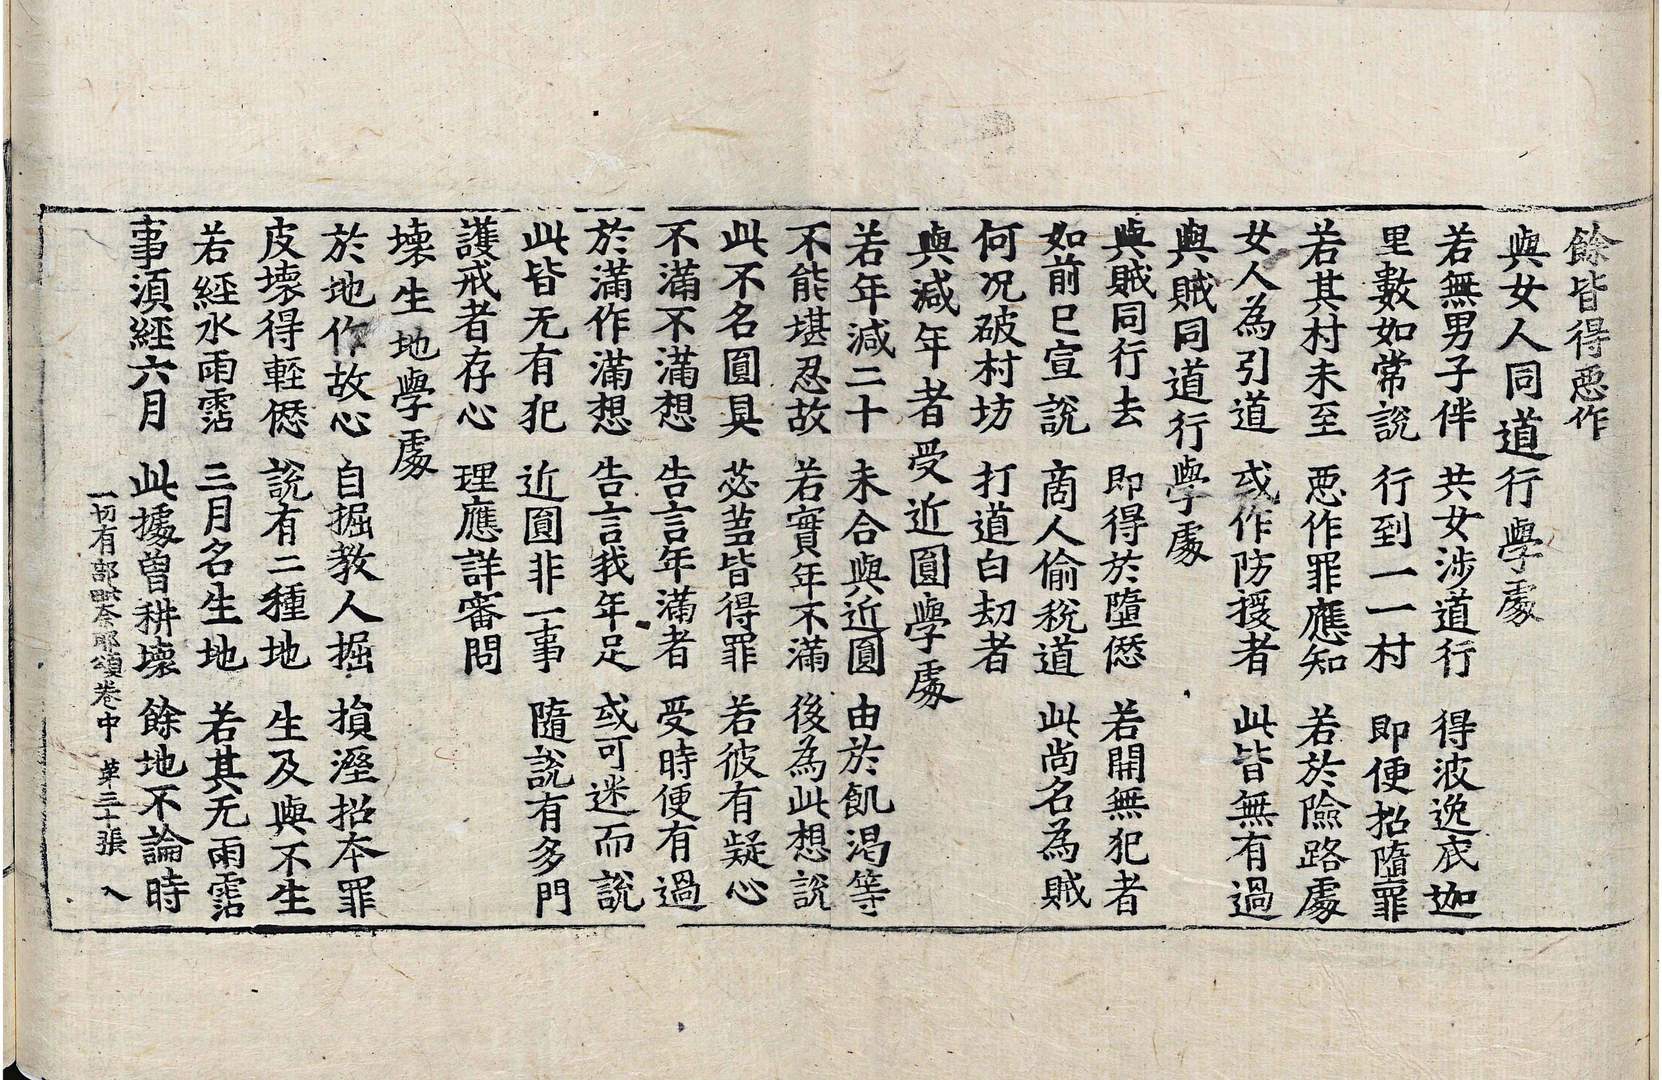 餘皆得惡作
與女人同道行學處
若無男子伴　共女涉道行　得波逸底迦
里數如常說　行到一一村　即便招墮罪
若其村未至　惡作罪應知　若於險路處
女人為引道　或作防援者　此皆無有過
與賊同道行學處
與賊同行去　即得於墮愆　若開無犯者
如前已宣說　商人偷稅道　此尚名為賊
何况破村坊　打道白劫者
與減年者受近圓學處
若年減二十　未合與近圓　由於飢渴等
不能堪忍故　若實年不滿　後為此想說
此不名圓具　苾蒭皆得罪　若彼有疑心
不滿不滿想　告言年滿者　受時便有過
於滿作滿想　告言我年足　或可迷而說
此皆无有犯　近圓非一事　隨說有多門
護戒者存心　理應詳審問
壞生地學處
於地作故心　自掘教人掘　損溼招本罪
皮壞得輕愆　說有二種地　生及與不生
若經水雨霑　三月名生地　若其无雨霑
事須經六月　此據曾耕壞　餘地不論時
一切有部毗奈耶頌卷中　苐三十張　入